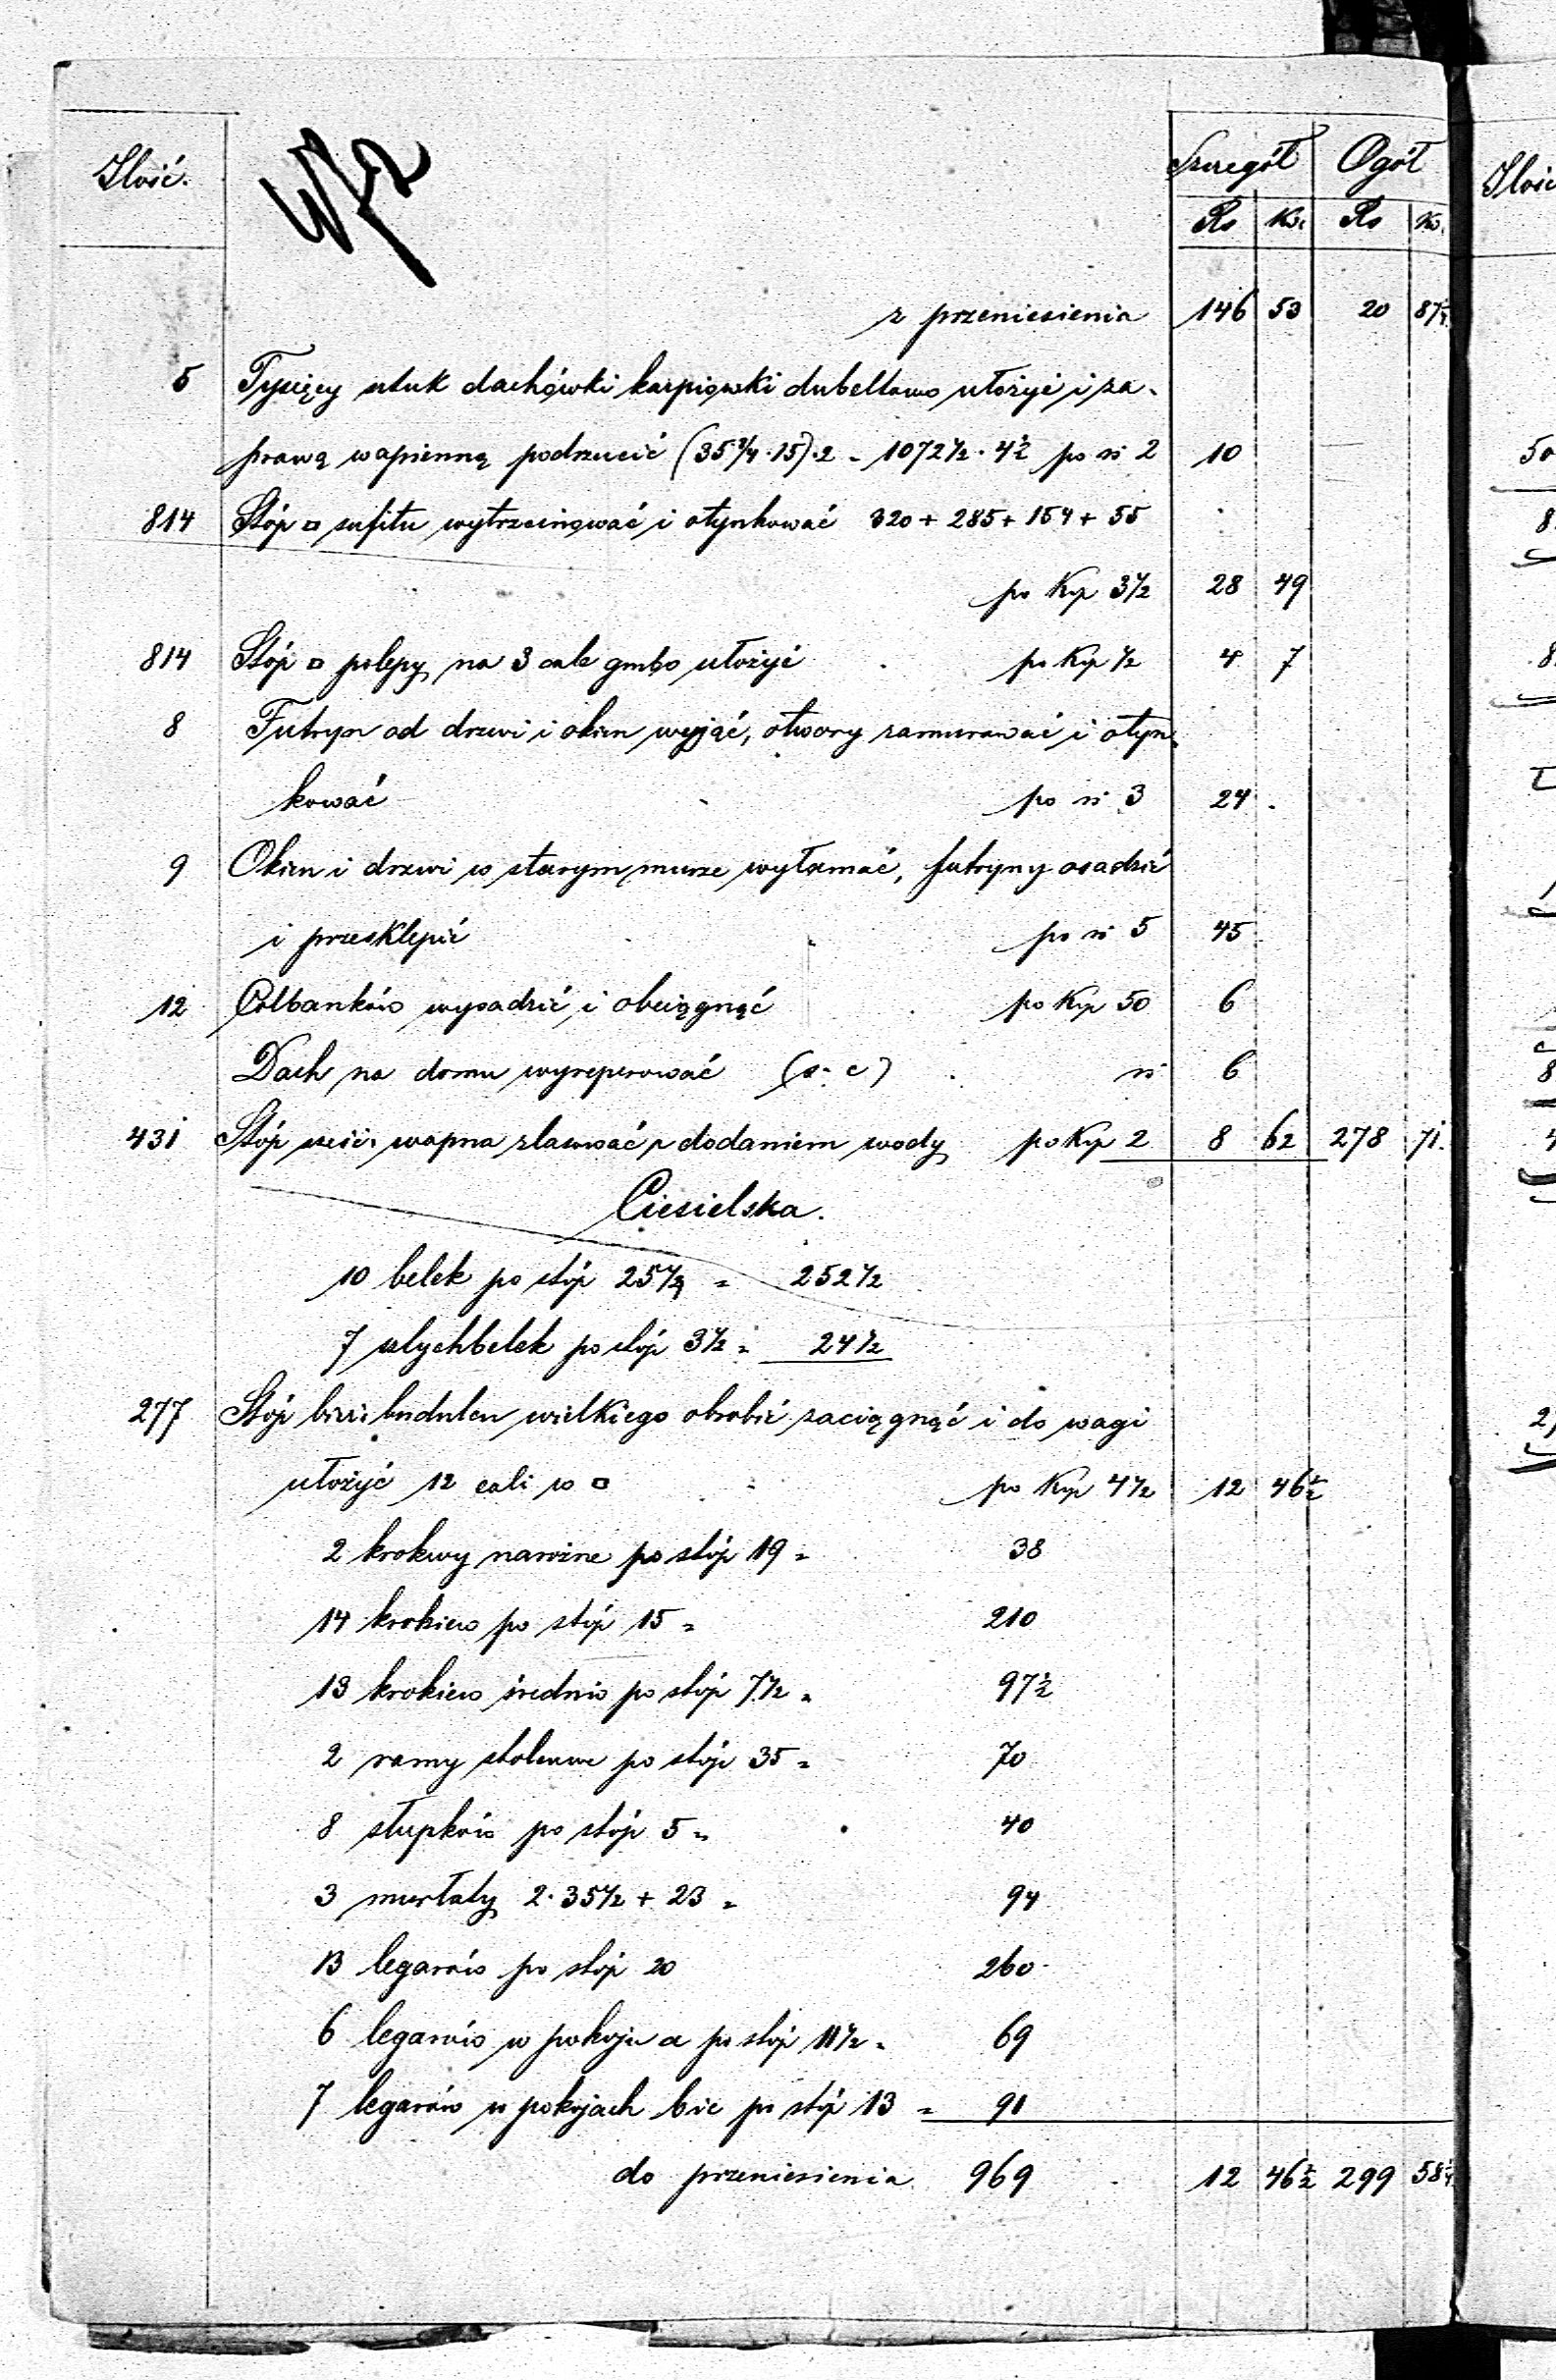 Ilość. Szczegół Ogół
Rs Ko. Rs Ko.
z przeniesienia 146 53 20 87¼
5 Tysięcy sztuk dachówki karpiówki dubeltowo ułożyć i za-
prawą wapienną podrzucić (35¾·15)·2 = 1072½·4½ po rs 2 10
814 Stóp □ sufitu wytrzcinować i otynkować 320 + 285 + 154 + 55
po Kop 3½ 28 49
814 Stóp □ polepy na 3 cale grubo ułożyć po Kop ½ 4 7
8 Futryn od drzwi i okien wyjąć, otwory zamurować i otyn-
kować po rs 3 24
9 Okien i drzwi w starym murze wyłamać, futryny osadzić
i przesklepić po rs 5 45
12 Colbanków wysadzić i obciągnąć po Kop 50 6
Dach na domu wyreperować (s. c) rs 6
431 Stóp sześć. wapna zlasować z dodaniem wody po Kop 2 8 62 278 71.
Ciesielska.
10 belek po stóp 25¼ = 252½
7 sztychbelek po stóp 3½ = 24½
277 Stóp bież: budulcu wielkiego obrobić zaciągnąć i do wagi
ułożyć 12 cali w □ po Kop 4½ 12 46½
2 krokwy narożne po stóp 19 = 38
14 krokiew po stóp 15 = 210
13 krokiew średnio po stóp 7½ = 97½
2 ramy stolcowe po stóp 35 = 70
8 słupków po stóp 5 = 40
3 murłaty 2·35½ + 23 = 94
13 legarów po stóp 20 260
6 legarów w pokoju a po stóp 11½ = 69
7 legarów w pokojach b i c po stóp 13 = 91
do przeniesienia 969 12 46½ 299 58¼